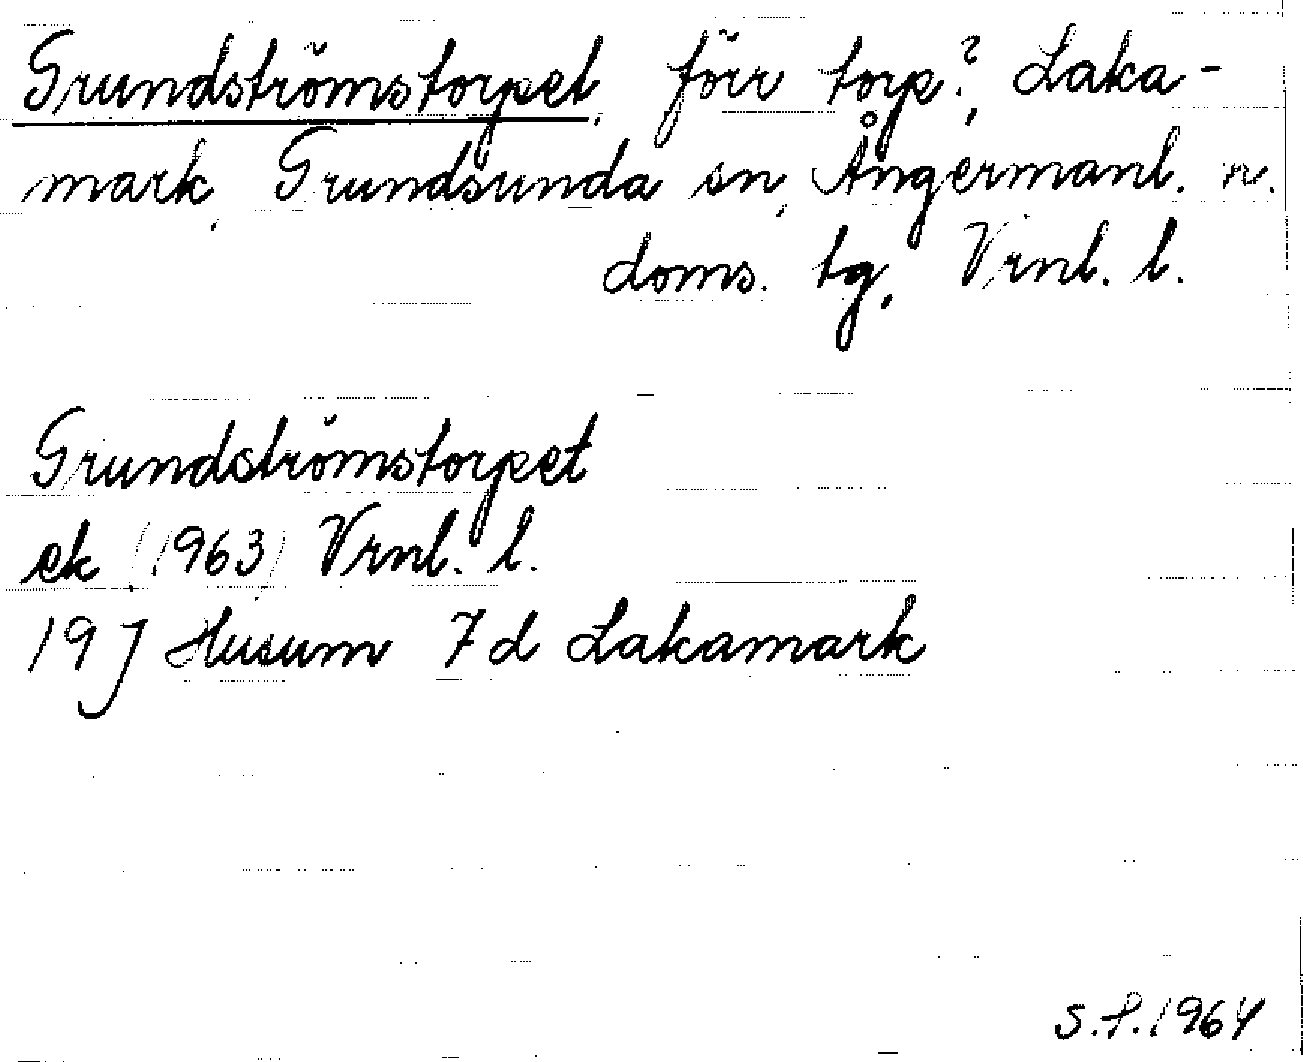 Grundströmstorpet, förr torp?, Laka-
mark, Grundsunda sn, Ångermanl. n.
doms. tg, Vrnl. l.
Grundströmstorpet
ek (1963) Vrnl. l.
19 J Husum 7 d Lakamark
S.P. 1964